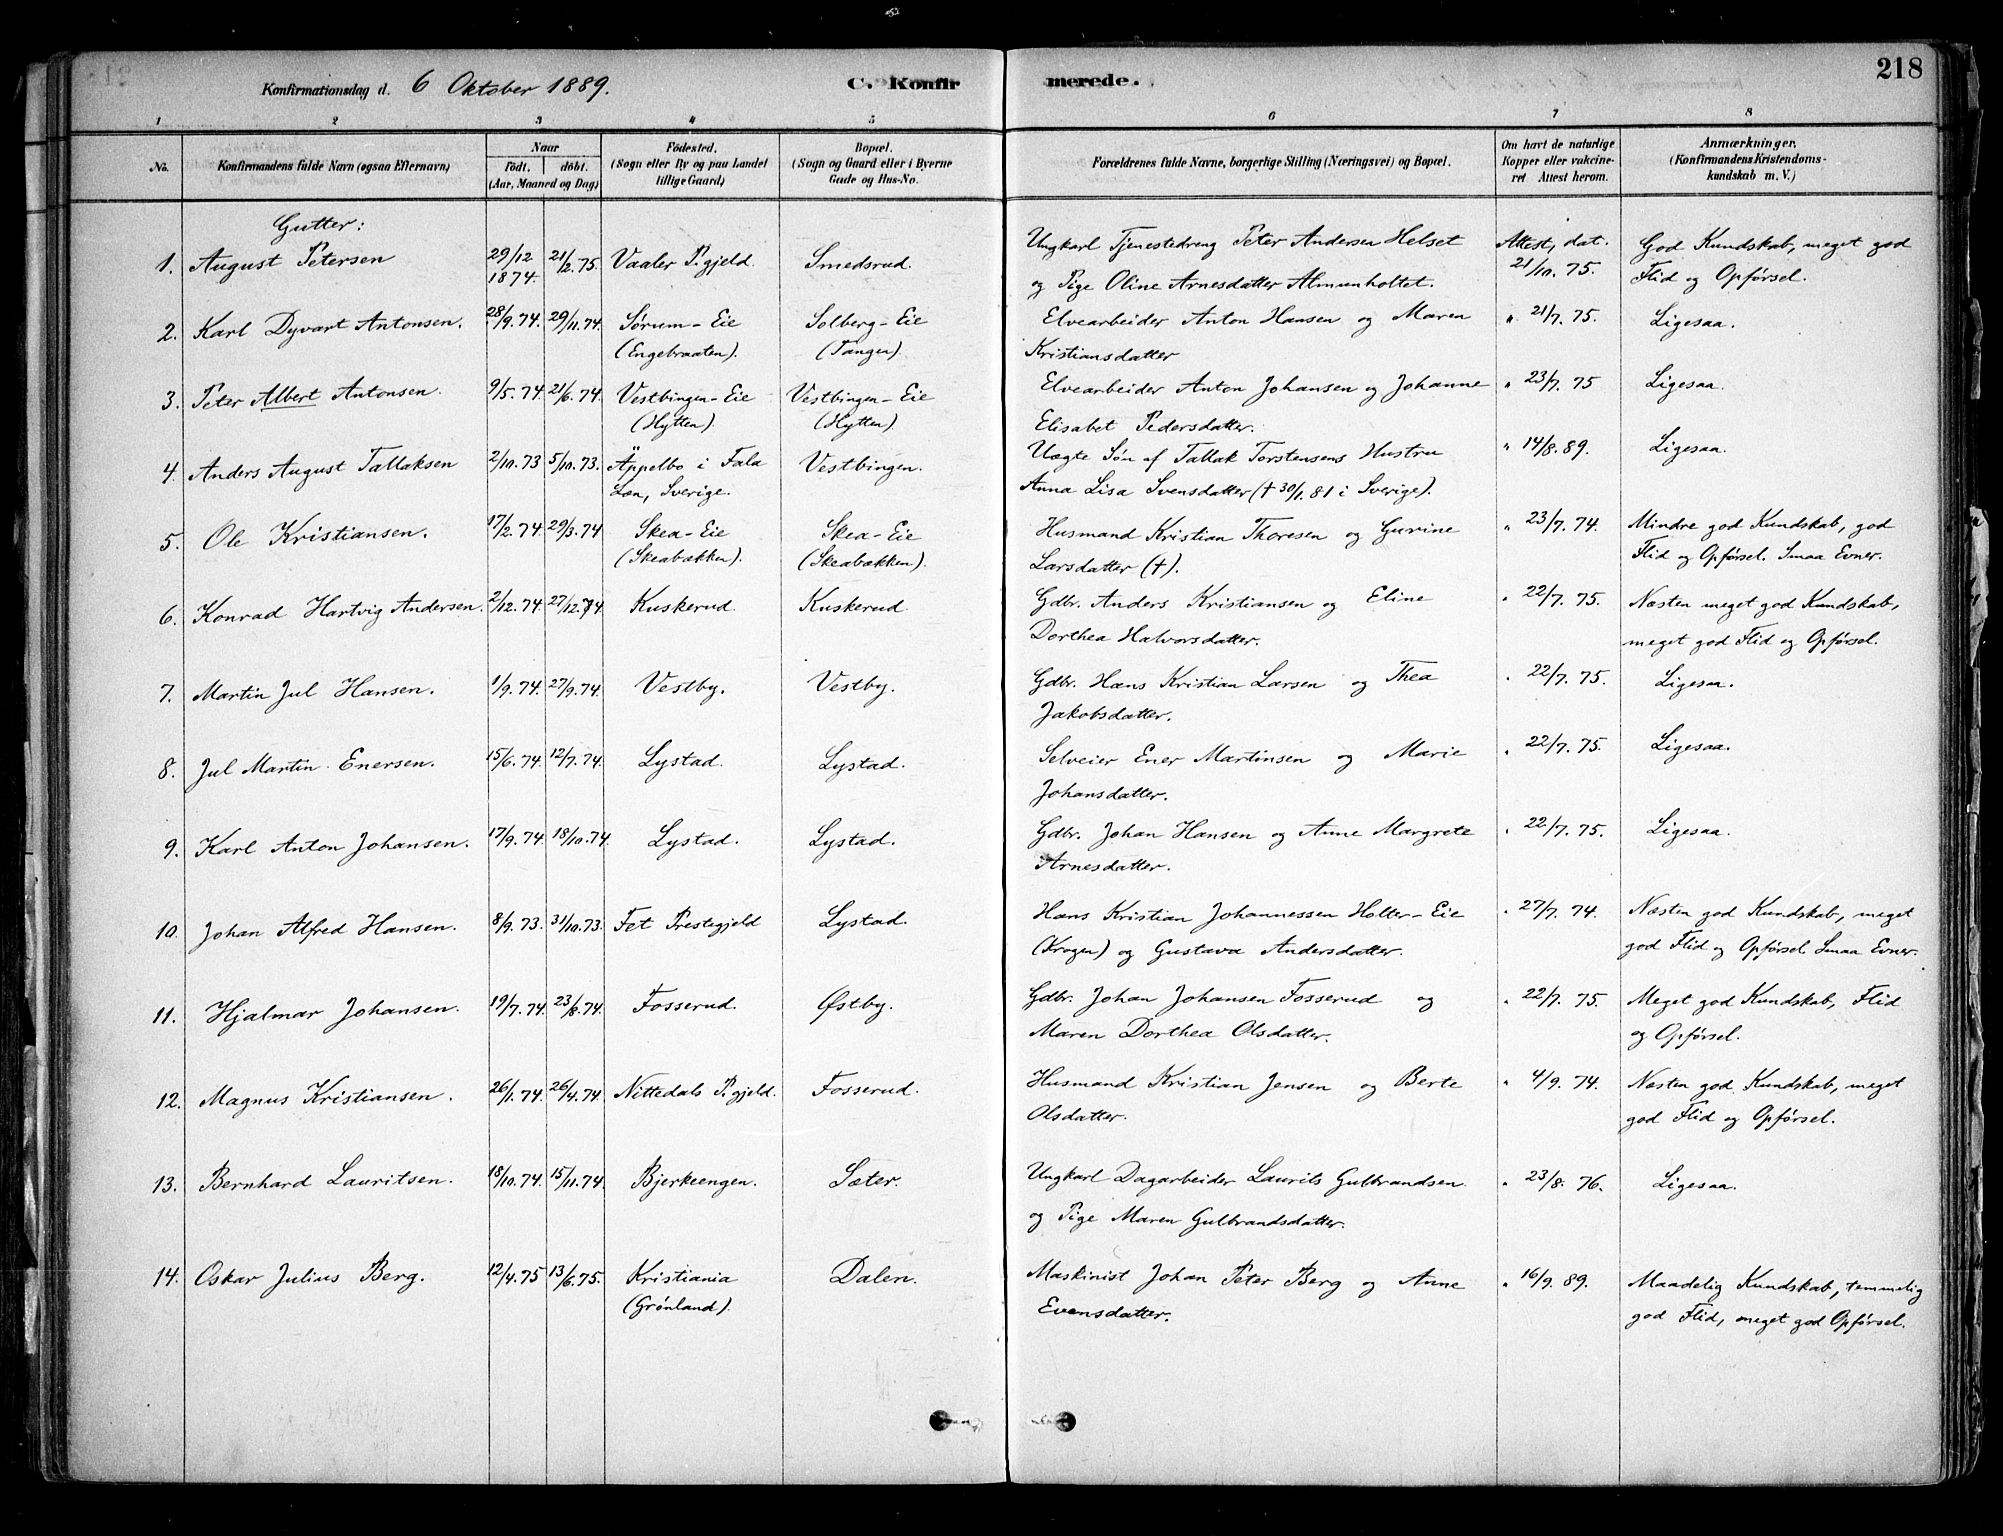 Konfirmationsdag d. 6 Oktober 1889.
C. Konfirmerede.
218
1 2 3 4 5 6 7 8
No.
Konfirmandens fulde Navn (ogsaa Efternavn)
Naar
Födt. döbt.
(Aar, Maaned og Dag)
Födested.
(Sogn eller By og paa Landet
tillige Gaard)
Bopæl.
(Sogn og Gaard eller i Byerne
Gade og Hus-No.
Forældrenes fulde Navne, borgerlige Stilling (Næringsvei) og Bopæl.
Om havt de naturlige
Kopper eller vakcine-
ret Attest herom.
Anmærkninger.
(Konfirmandens Kristendoms-
kundskab m. V.)
Gutter:
1. August Petersen 29/12 1874. 21/2.75. Vaaler P.gjeld. Smedsrud. Ungkarl Tjenestedreng Peter Andersen Helset Attest, dat. God Kundskab, meget god
og Pige Oline Arnesdatter Almunholtet. 21/10. 75. Flid og Opførsel.
2. Karl Dyvart Antonsen. 28/9.74. 29/11.74. Sørum-Eie Solberg-Eie Elvearbeider Anton Hansen og Maren " 21/7. 75. Ligesaa.
(Engebraaten). (Tangen). Kristiansdatter
3. Peter Albert Antonsen. 9/5.74. 21/6.74. Vestbingen-Eie Vestbingen-Eie Elvearbeider Anton Johansen og Johanne " 23/7. 75 Ligesaa.
(Hytten). (Hytten). Elisabet Pedersdatter.
4. Anders August Tallaksen 2/10.73 5/10.73. Äppelbo i Fala Vestbingen. Uægte Søn af Tallak Torstensens Hustru " 14/8. 89. Ligesaa.
Læn, Sverige. Anna Lisa Svensdatter († 30/1. 81 i Sverige).
5. Ole Kristiansen. 17/2.74. 29/3.74 Skea-Eie Skea-Eie Husmand Kristian Thoresen og Gurine " 23/7. 74. Mindre god Kundskab, god
(Skeabækken). (Skeabækken). Larsdatter (†). Flid og Opførsel. Smaa Evner.
6. Konrad Hartvig Andersen. 2/12.74. 27/12.74. Kuskerud. Kuskerud. Gdbr. Anders Kristiansen og Eline " 22/7. 75. Næsten meget god Kundskab,
Dorthea Halvorsdatter. meget god Flid og Opførsel.
7. Martin Jul Hansen. 1/9.74. 27/9.74. Vestby. Vestby. Gdbr. Hans Kristian Larsen og Thea " 22/7. 75. Ligesaa.
Jakobsdatter.
8. Jul Martin Enersen. 15/6.74. 12/7.74. Lystad. Lystad. Selveier Ener Martinsen og Marie " 22/7. 75. Ligesaa.
Johansdatter.
9. Karl Anton Johansen. 17/9.74. 18/10.74. Lystad. Lystad. Gdbr. Johan Hansen og Anne Margrete " 22/7. 75. Ligesaa.
Arnesdatter.
10. Johan Alfred Hansen. 8/9.73. 31/10.73. Fet Prestegjeld Lystad. Hans Kristian Johannessen Holter-Eie " 27/7. 74. Næsten god Kundskab, meget
(Krogen) og Gustava Andersdatter. god Flid og Opførsel. Smaa Evner.
11. Hjalmar Johansen. 19/7.74. 23/8.74. Fosserud. Østby. Gdbr. Johan Johansen Fosserud og " 22/7. 75. Meget god Kundskab, Flid
Maren Dorthea Olsdatter. og Opførsel.
12. Magnus Kristiansen. 26/1.74. 26/4.74. Nittedals P.gjeld. Fosserud. Husmand Kristian Jensen og Berte " 4/9. 74. Næsten god Kundskab, meget
Olsdatter. god Flid og Opførsel.
13. Bernhard Lauritsen. 18/10.74. 15/11.74. Bjerkeengen. Sæter. Ungkarl Dagarbeider Laurits Gulbrandsen " 23/8. 76. Ligesaa.
og Pige Maren Gulbrandsdatter.
14. Oskar Julius Berg. 12/4.75 13/6.75. Kristiania Dalen. Maskinist Johan Peter Berg og Anne " 16/9. 89. Maadelig Kundskab, temmelig
(Grønland). Evensdatter. god Flid, meget god Opførsel.